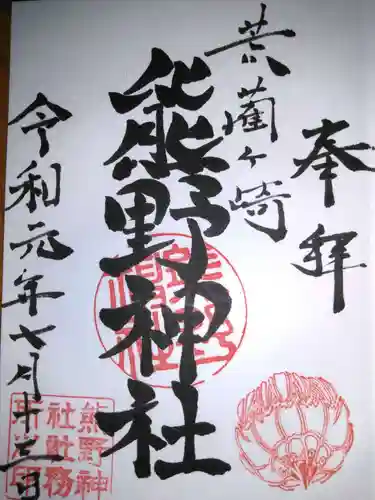 奉拝
ヶ崎
熊野神社
令和元年七月
熊野神
社社務
所之印